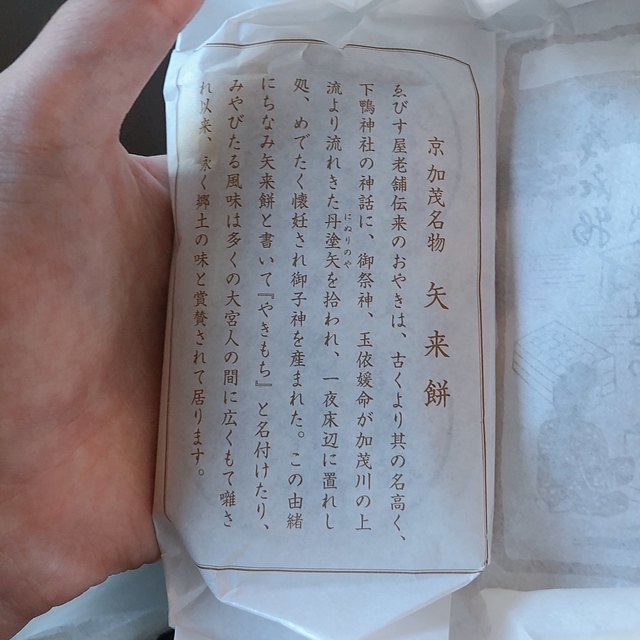 京加茂名物 矢来餅
ゑびす屋老舗伝来のおやきは、古くより其の名高く、
下鴨神社の神話に、御祭神、玉依媛命が加茂川の上
流より流れきた丹塗矢を拾われ、一夜床辺に置れし
にぬりのや
処、めでたく懐妊され御子神を産まれた。この由緒
にちなみ矢来餅と書いて『やきもち』と名付けたり、
みやびたる風味は多くの大宮人の間に広くもて囃さ
れ以来、永く郷土の味と賞賛されて居ります。